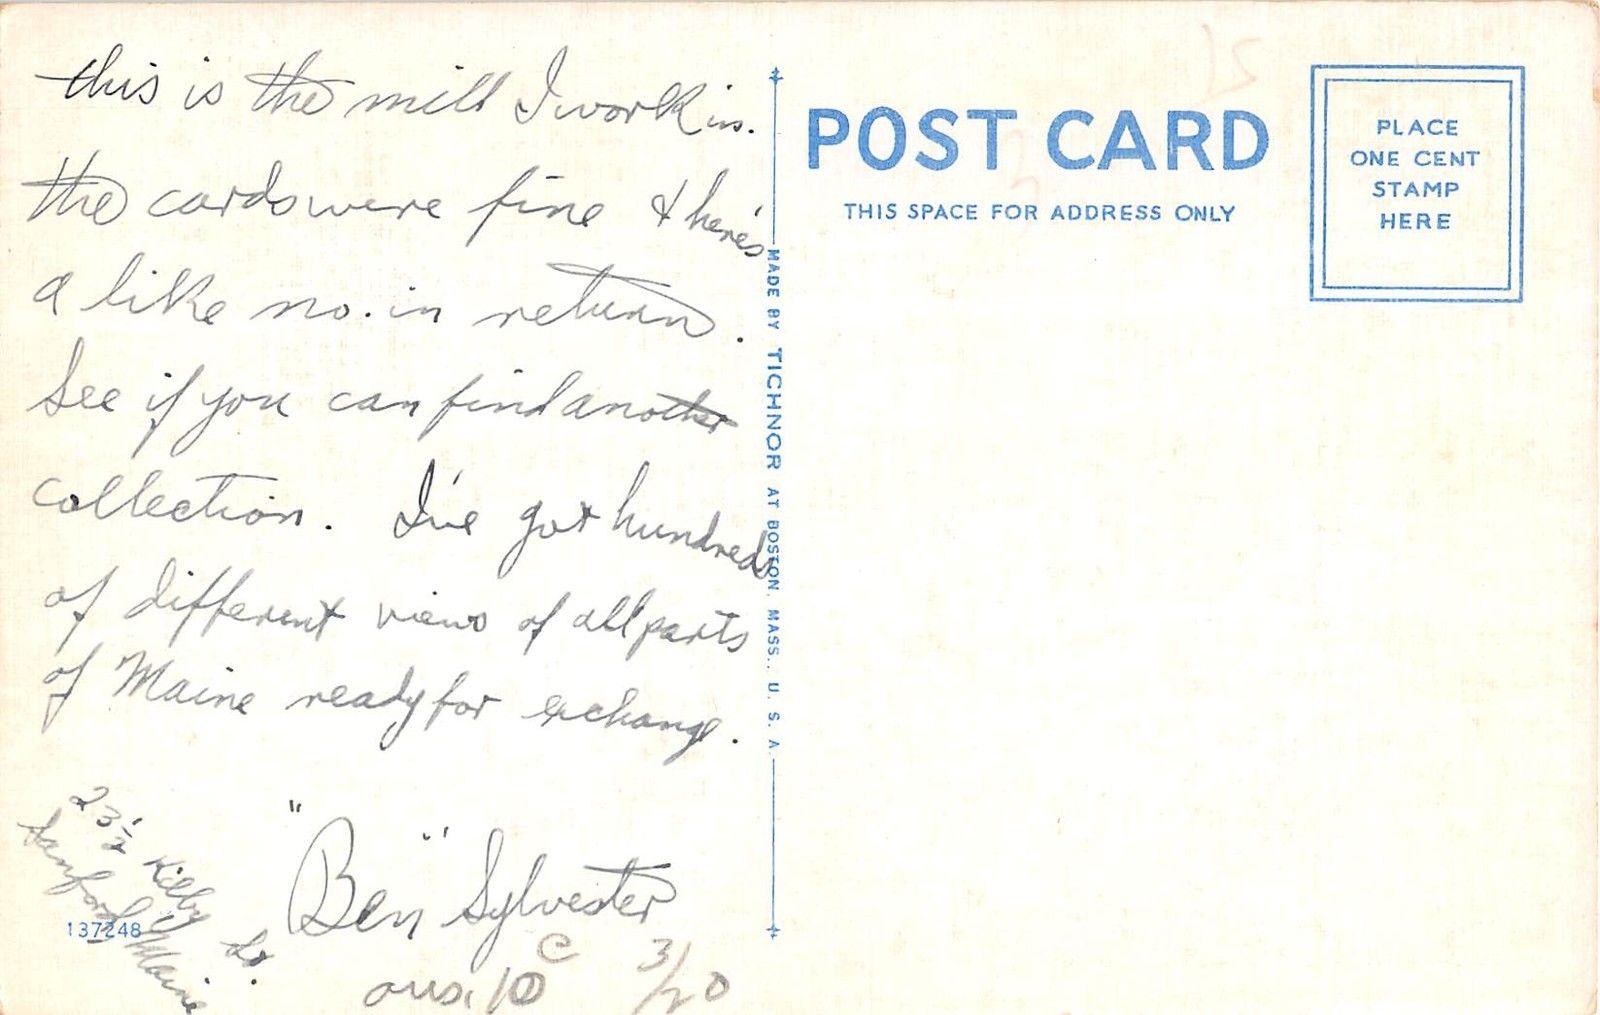 this is the mill I work in.
the cards were fine & here's
a like no. in return.
See if you can find another
collection. I've got hundreds
of different views of all parts
of Maine ready for exchange.
"Ben" Sylvester
23½ Kilby St.
Sanford, Maine
137248
ans. 10 C
3/20
MADE BY TICHNOR AT BOSTON, MASS., U. S. A.
POST CARD
THIS SPACE FOR ADDRESS ONLY
PLACE
ONE CENT
STAMP
HERE